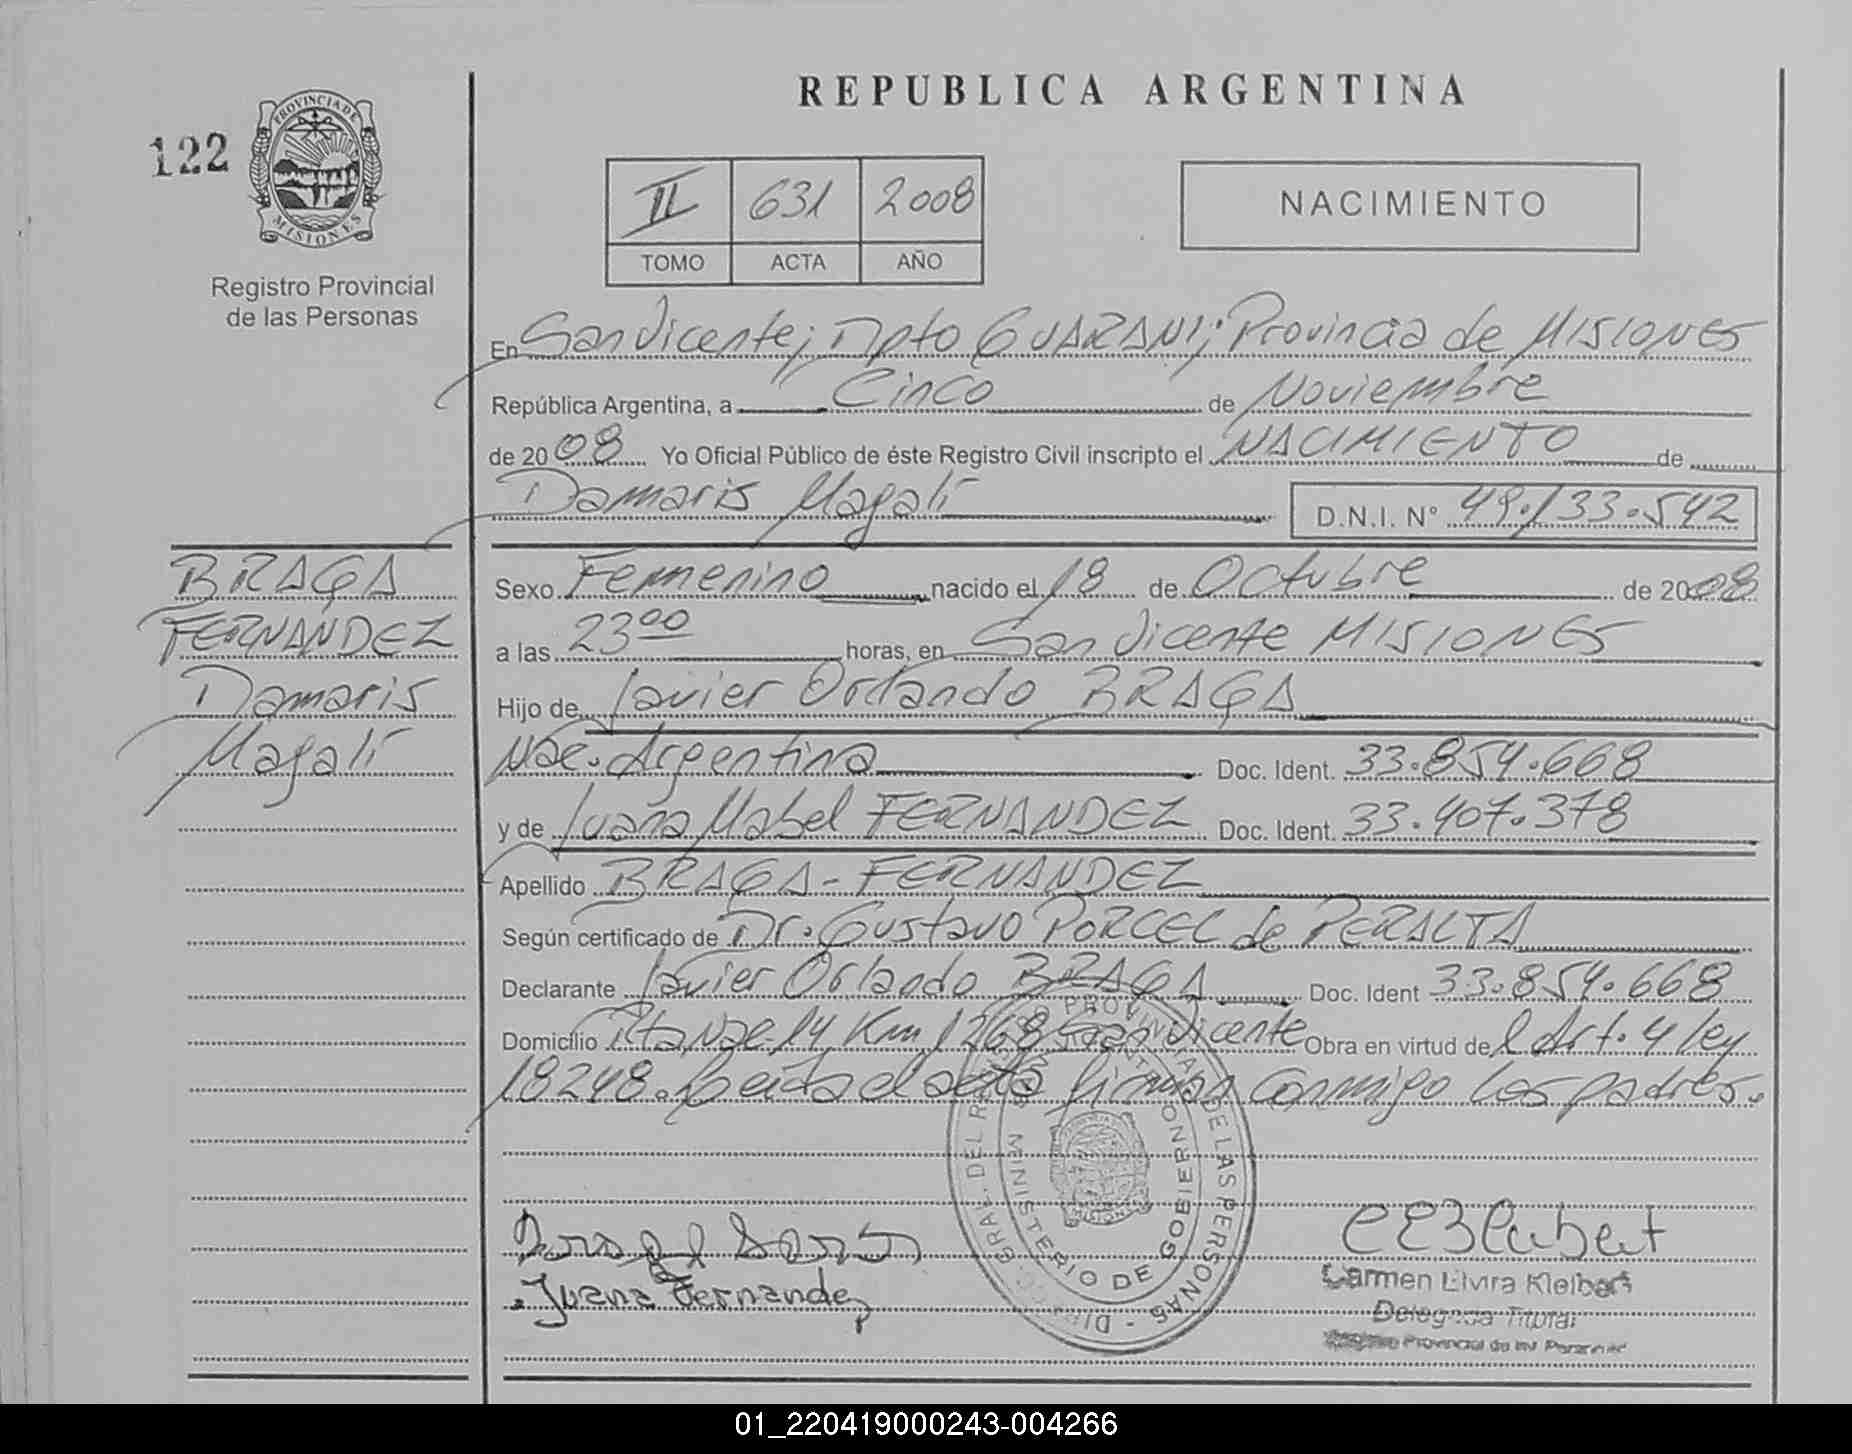 REPUBLICA ARGENTINA
122
PROVINCIA DE
MISIONES
Registro Provincial
de las Personas
II 631 2008
TOMO ACTA AÑO
NACIMIENTO
En San Vicente; Dpto GUARANI; Provincia de MISIONES
República Argentina, a Cinco de Noviembre
de 2008 Yo Oficial Público de éste Registro Civil inscripto el NACIMIENTO de
Damaris Magalí D.N.I. N° 49.133.542
BRAGA
FERNANDEZ
Damaris
Magalí
Sexo Femenino nacido el 18 de Octubre de 2008
a las 23 00 horas, en San Vicente MISIONES
Hijo de Javier Orlando BRAGA
Nac. Argentina Doc. Ident. 33.854.668
y de Juana Mabel FERNANDEZ Doc. Ident. 33.407.378
Apellido BRAGA - FERNANDEZ
Según certificado de Dr. Gustavo PORCEL de PERALTA
Declarante Javier Orlando BRAGA Doc. Ident 33.854.668
Domicilio Rta Nac. 14 Km 1268 San Vicente Obra en virtud del Art. 4 ley
18248. el acta firman conmigo los padres.
MINISTERIO DE GOBIERNO
Juana Fernandez
Carmen Elvira Kleibert
Delegada Titular
Registro Provincial de las Personas
01_220419000243-004266